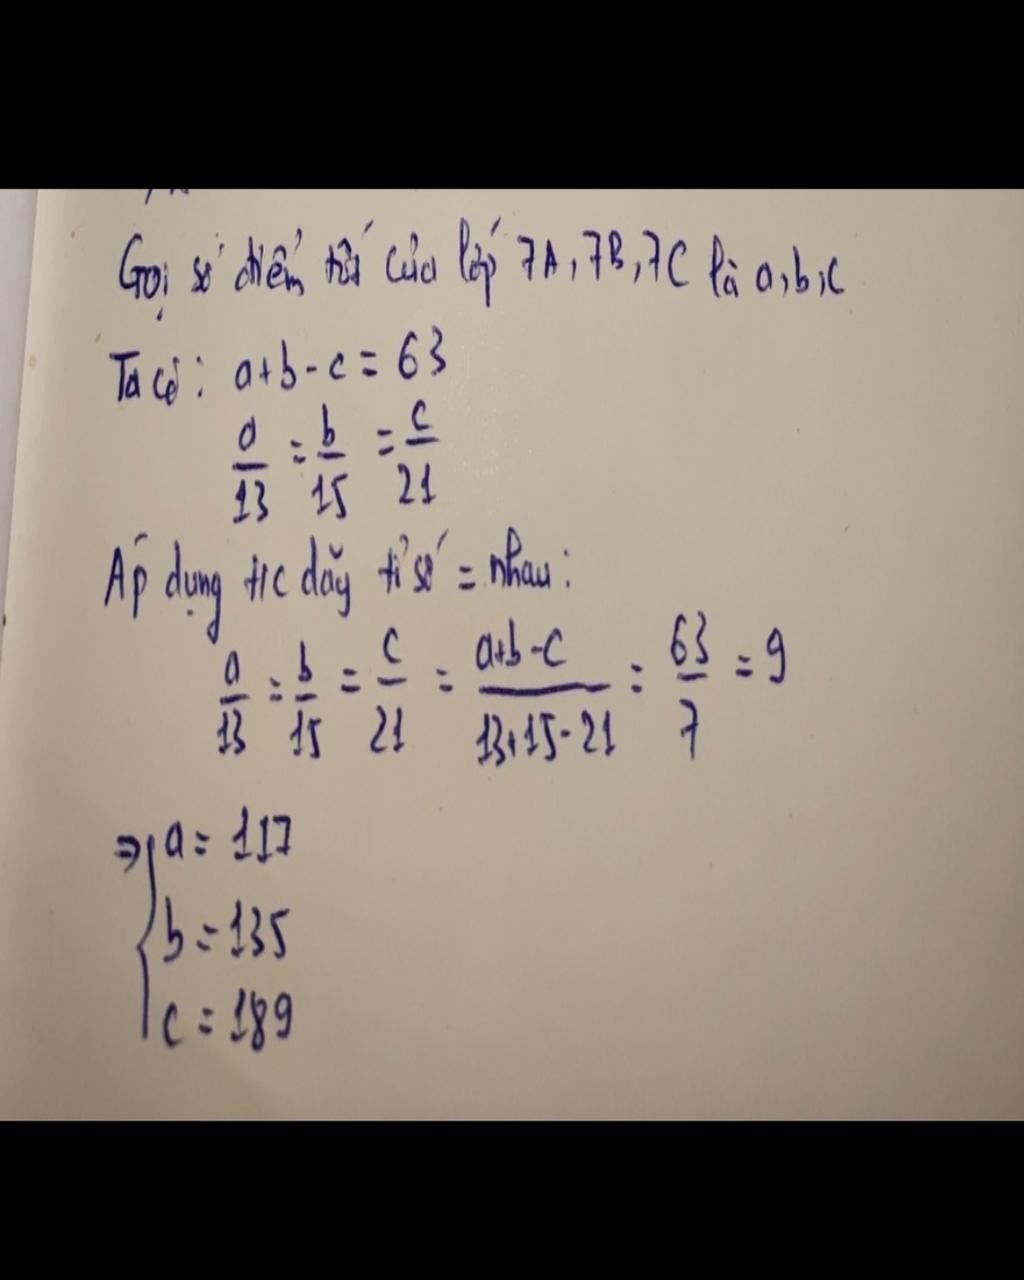 Gọi số điểm tốt của lớp 7A, 7B, 7C là a, b, c
Ta có: a+b-c = 63
a/13 = b/15 = c/21
Áp dụng t/c dãy tỉ số = nhau:
a/13 = b/15 = c/21 = a+b-c/13+15-21 = 63/7 = 9
⇒ { a = 117
b = 135
c = 189